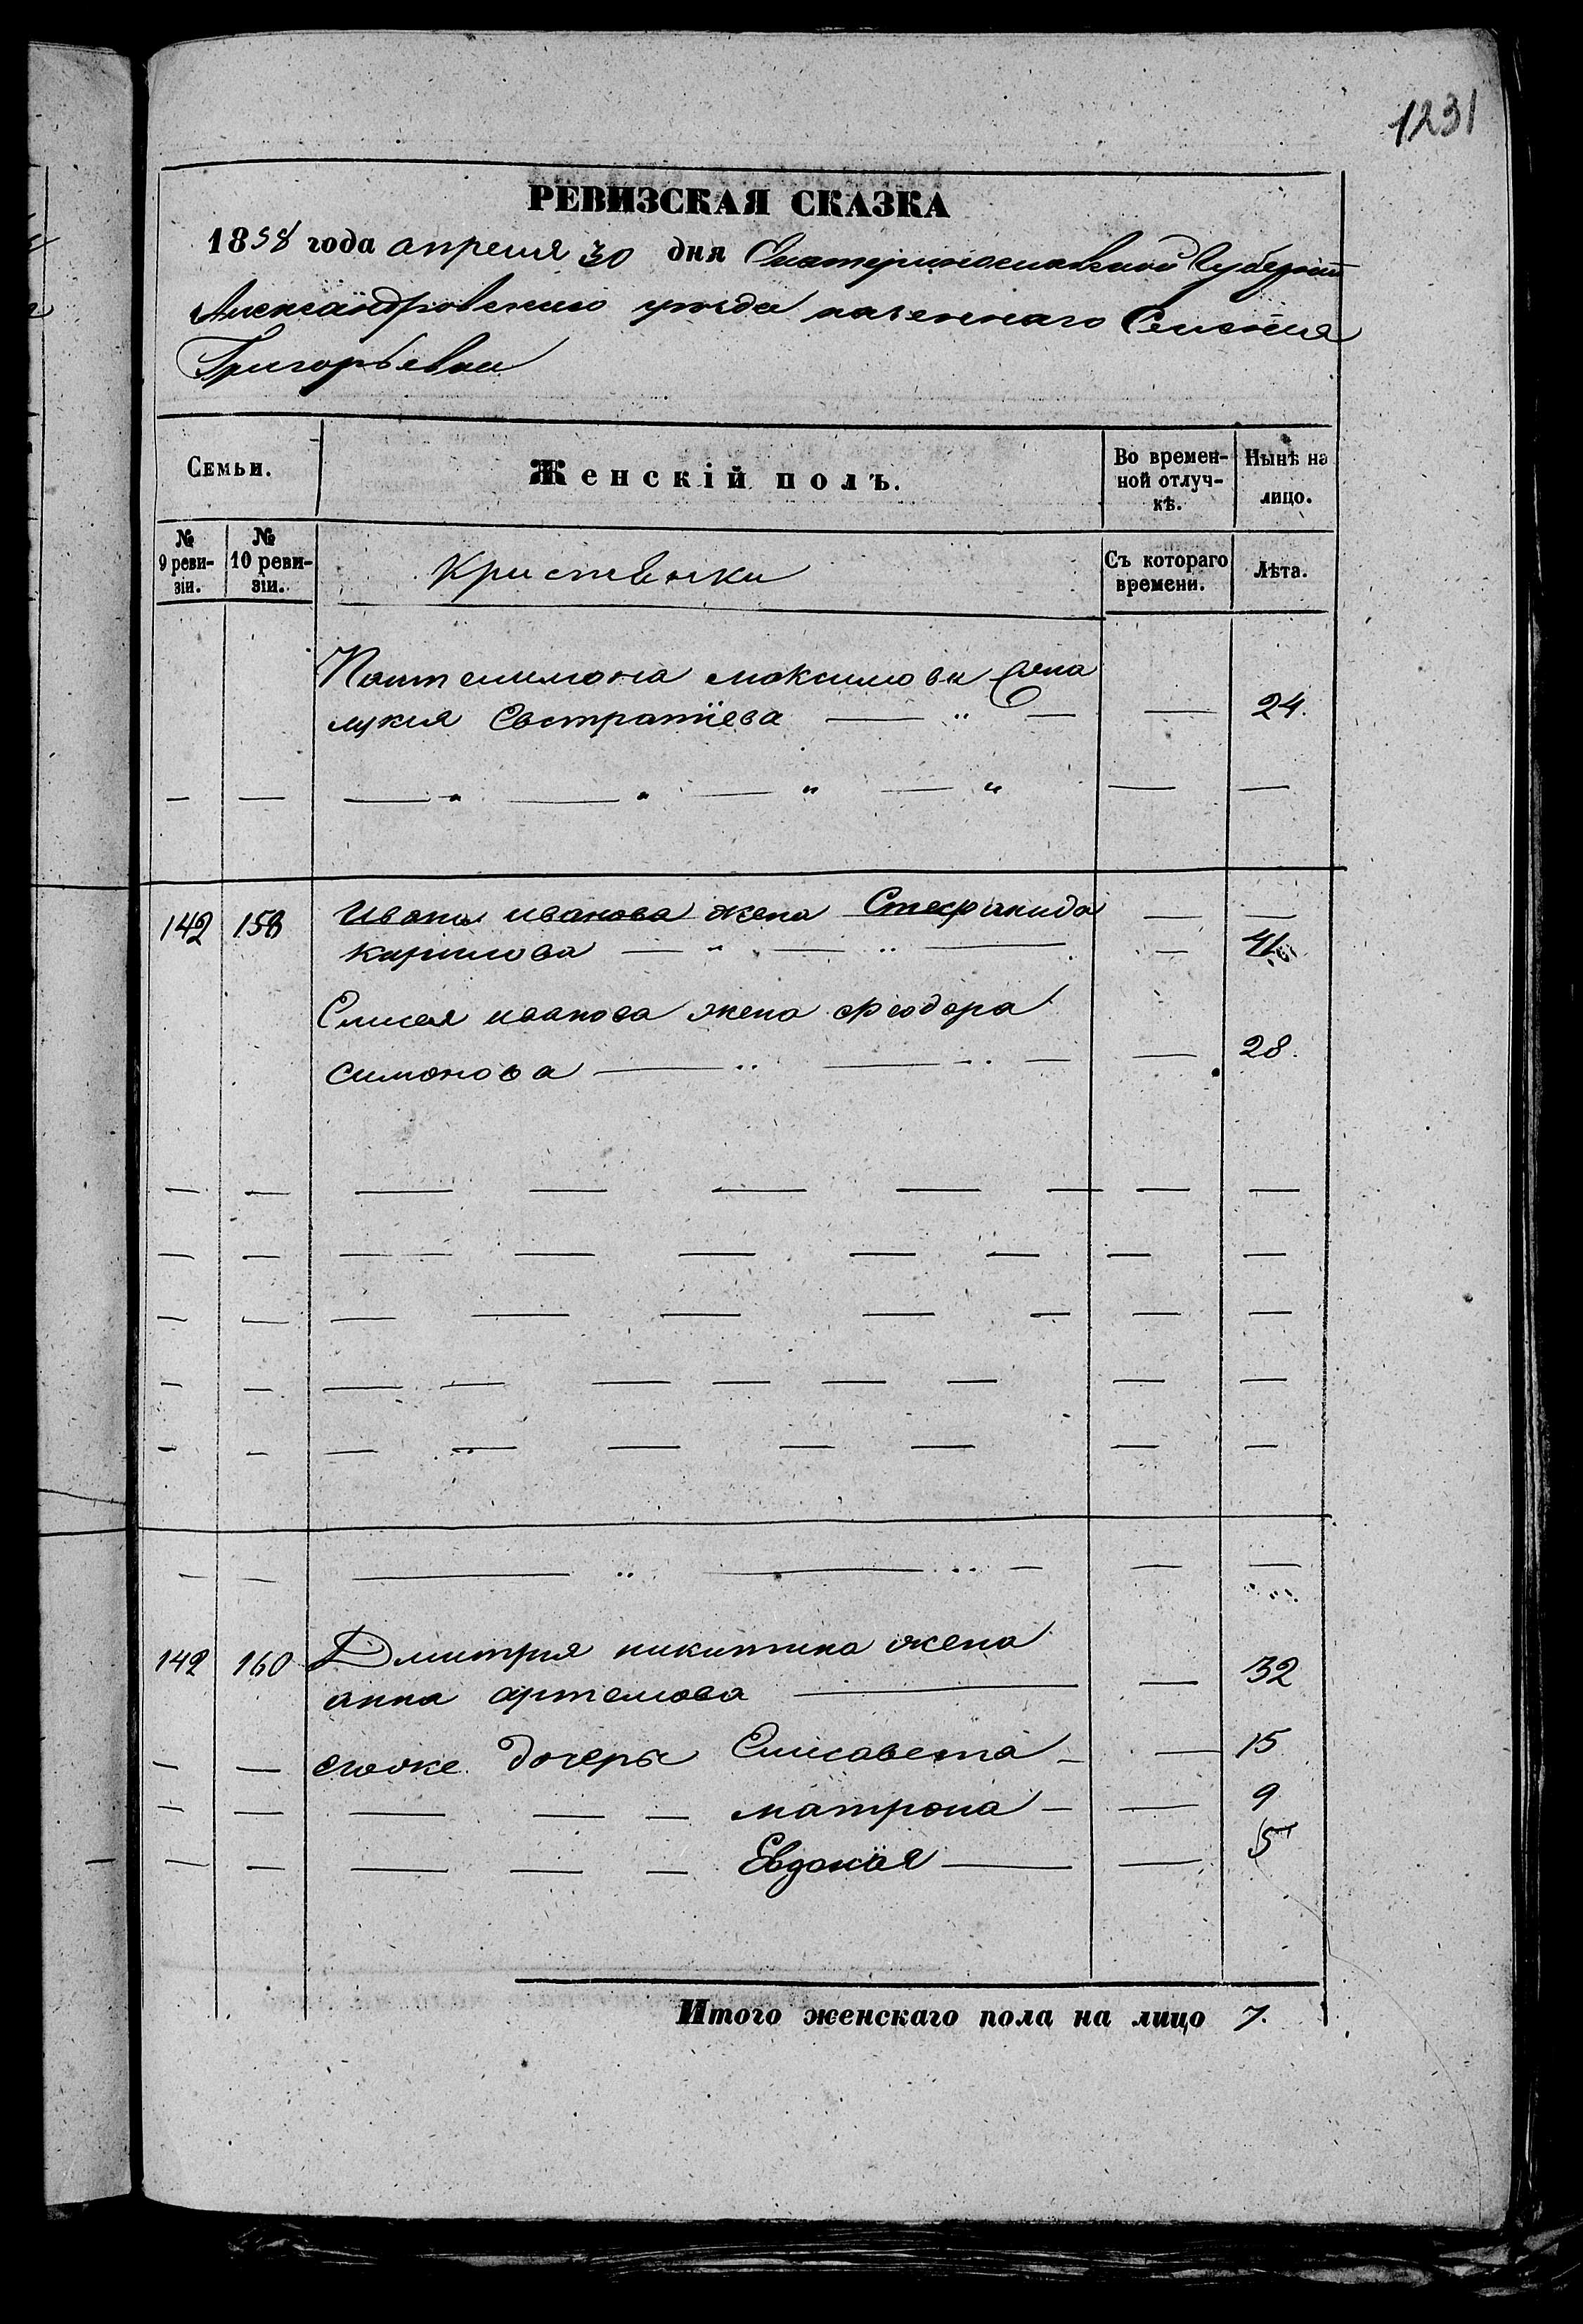 1231
РЕВИЗСКАЯ СКАЗКА
1858 года апреля 30 дня Екатеринославской Губернии
Александровскаго уезда казеннаго Селенія
Григорьевки
Семьи.
Женскій полъ.
Во времен-
ной отлуч-
кѣ.
Нынѣ на
лицо.
№
9 реви-
зіи.
№
10 реви-
зіи.
Кристянки
Съ котораго
времени.
Лѣта.
Пантелимона максимова жена
лукия Евстратіева — „ — — 24.
— — — „ — „ — „ — „ — —
142 158 Ивана иванова жена Стефанида — —
Кирилова — „ — „ — — 41
Елисея иванова жена Феодора
симонова — „ — „ — — 28.
142 160 Дмитрия никитина жена
анна артемова — — 32
— — егоже дочеры Елисавета — — 15
— — — — — матрона — — 9
— — — — — Евдокія — — 5
Итого женскаго пола на лицо 7.